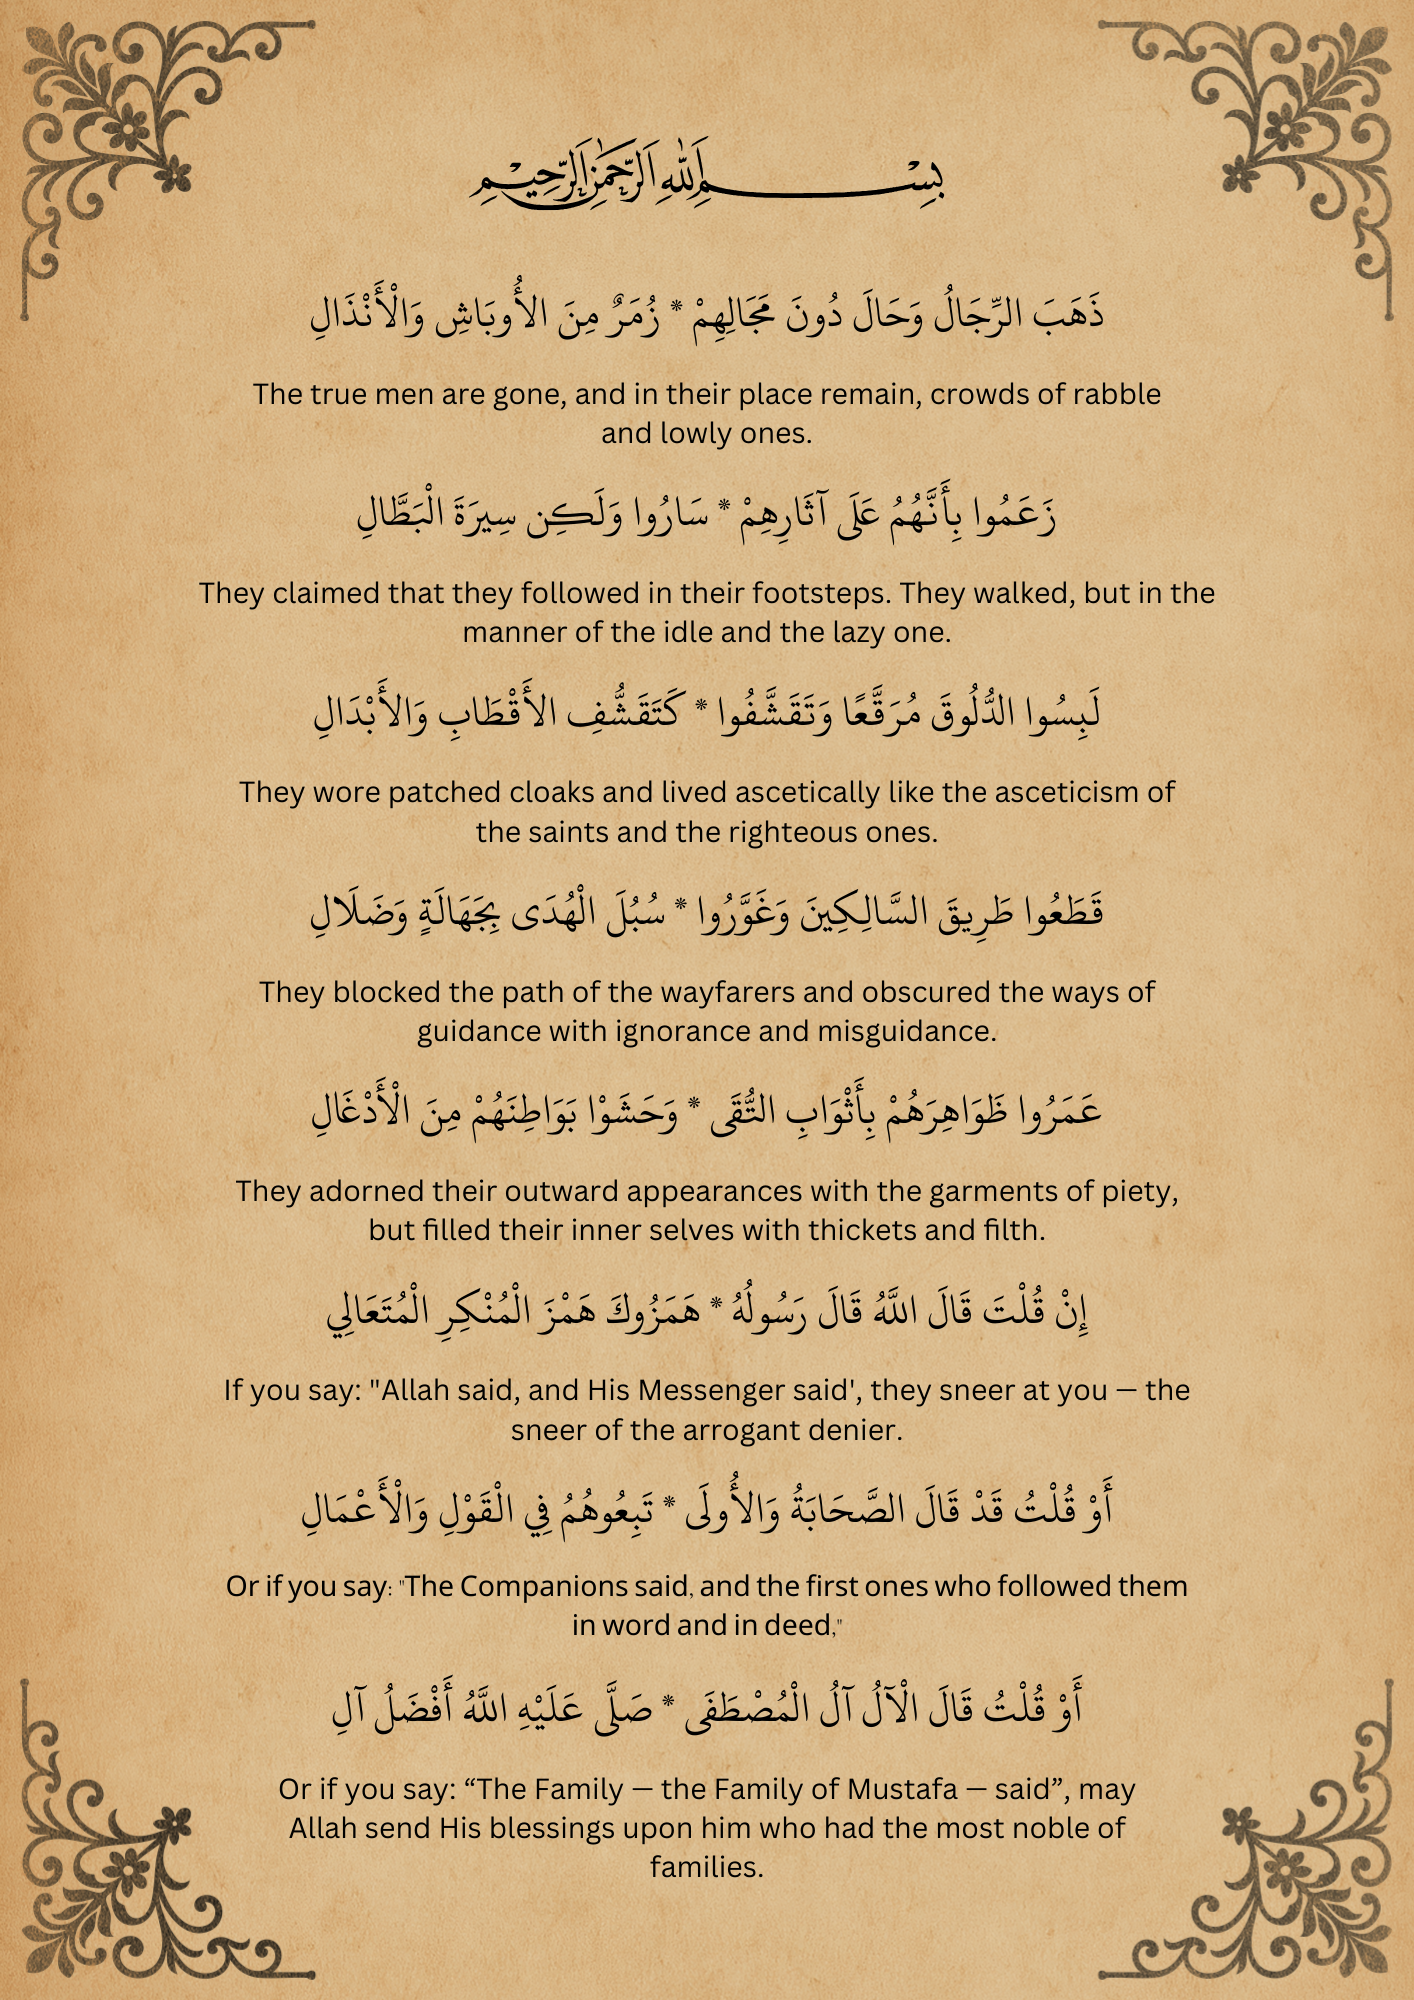 بسم الله الرحمن الرحيم
ذَهَبَ الرِّجَالُ وَحَالَ دُونَ مَجَالِهِمْ * زُمَرٌ مِنَ الأُوبَاشِ وَالْأَنْذَالِ
The true men are gone, and in their place remain, crowds of rabble
and lowly ones.
زَعَمُوا بِأَنَّهُمُ عَلَى آثَارِهِمْ * سَارُوا وَلَكِن سِيرَةَ الْبَطَّالِ
They claimed that they followed in their footsteps. They walked, but in the
manner of the idle and the lazy one.
لَبِسُوا الدُّلُوقَ مُرَقَّعًا وَتَقَشَّفُوا * كَتَقَشُّفِ الأَقْطَابِ وَالأَبْدَالِ
They wore patched cloaks and lived ascetically like the asceticism of
the saints and the righteous ones.
قَطَعُوا طَرِيقَ السَّالِكِينَ وَغَوَّرُوا * سُبُلَ الْهُدَى بِجَهَالَةٍ وَضَلَالِ
They blocked the path of the wayfarers and obscured the ways of
guidance with ignorance and misguidance.
عَمَرُوا ظَوَاهِرَهُمْ بِأَثْوَابِ التُّقَى * وَحَشَوْا بَوَاطِنَهُمْ مِنَ الْأَدْغَالِ
They adorned their outward appearances with the garments of piety,
but filled their inner selves with thickets and filth.
إِنْ قُلْتَ قَالَ اللَّهُ قَالَ رَسُولُهُ * هَمَزُوكَ هَمْزَ الْمُنْكِرِ الْمُتَعَالِي
If you say: "Allah said, and His Messenger said', they sneer at you — the
sneer of the arrogant denier.
أَوْ قُلْتُ قَدْ قَالَ الصَّحَابَةُ وَالأُولَى * تَبِعُوهُمُ فِي الْقَوْلِ وَالْأَعْمَالِ
Or if you say: "The Companions said, and the first ones who followed them
in word and in deed,"
أَوْ قُلْتُ قَالَ الْآلُ آلُ الْمُصْطَفَى * صَلَّى عَلَيْهِ اللَّهُ أَفْضَلُ آلِ
Or if you say: “The Family — the Family of Mustafa — said”, may
Allah send His blessings upon him who had the most noble of
families.